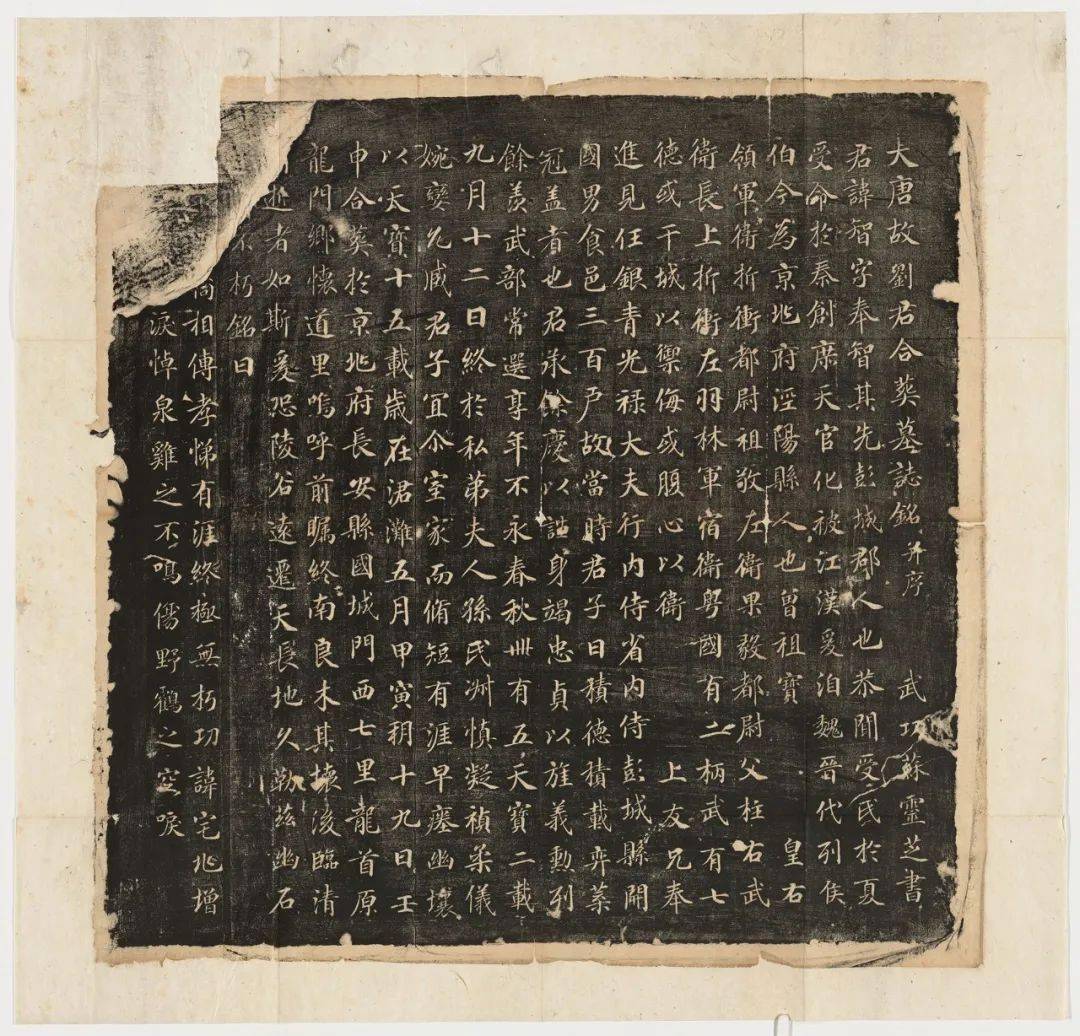 大唐故劉君合葬墓誌銘并序 武功蘇靈芝書
君諱智字奉智其先彭城郡人也恭聞受氏於夏
受命於秦創庶天官化被江漢爰洎魏晉代列侯
伯今為京兆府涇陽縣人也曾祖寶 皇右
領軍衛折衝都尉祖敬左衛果毅都尉父柱右武
衛長上折衝左羽林軍宿衛粤國有二柄武有七
德或干城以禦侮或腹心以衛 上友兄奉
進見任銀青光禄大夫行内侍省内侍彭城縣開
國男食邑三百戶故當時君子曰積德積載弈葉
冠盖者也君承餘慶以誼身竭忠貞以旌義勳列
餘羡武部常選享年不永春秋卌有五天寶二載
九月十二日終於私第夫人孫氏洲慎凝禎柔儀
婉孌允臧君子宜尒室家而脩短有涯早瘞幽壤
以天寶十五載歲在涒灘五月甲寅朔十九日壬
申合葬於京兆府長安縣國城門西七里龍首原
龍門鄉懷道里嗚呼前矚終南良木其壞後臨清
逝者如斯爰恐陵谷遠遷天長地久勒兹幽石
朽銘曰
相傳孝悌有涯終極無朽功諱宅兆增
淚悼泉雞之不鳴傷野鶴之空唳